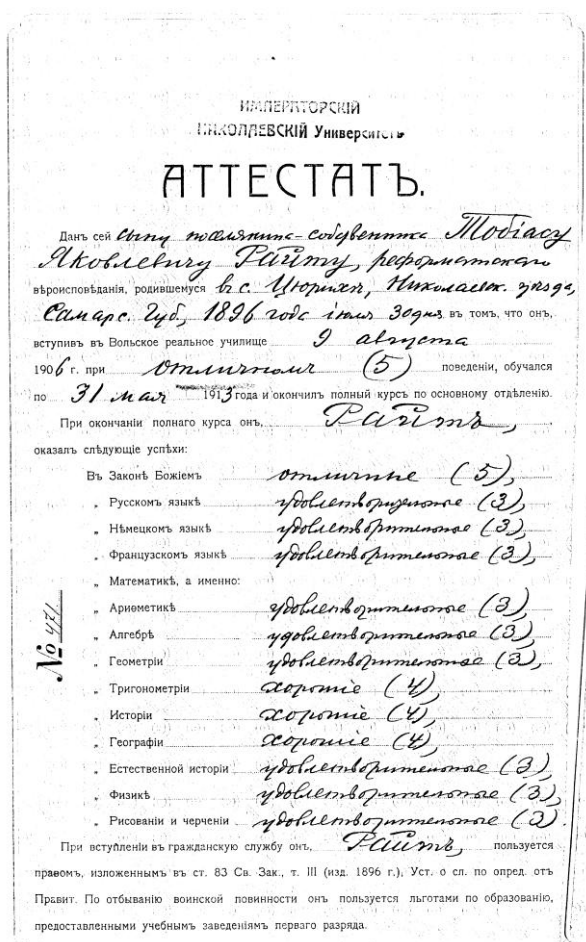 ИМПЕРАТОРСКІЙ
НИКОЛАЕВСКІЙ Университетъ
АТТЕСТАТЪ.
Данъ сей сыну поселянина-собственника Тобіасу
Яковлевичу Райту, реформатскаго
вѣроисповѣданія, родившемуся въ с. Цюрихъ, Николаевск. уѣзда,
Самарс. Губ., 1896 года іюля 30 дня въ томъ, что онъ,
вступивъ въ Вольское реальное училище 9 августа
1906 г. при отличномъ (5) поведеніи, обучался
по 31 мая 1913 года и окончилъ полный курсъ по основному отдѣленію.
При окончаніи полнаго курса онъ, Райтъ,
оказалъ слѣдующіе успѣхи:
Въ Законѣ Божіемъ отличные (5),
„ Русскомъ языкѣ удовлетворительные (3),
„ Нѣмецкомъ языкѣ удовлетворительные (3),
„ Французскомъ языкѣ удовлетворительные (3),
„ Математикѣ, а именно:
„ Ариѳметикѣ удовлетворительные (3),
„ Алгебрѣ удовлетворительные (3),
„ Геометріи удовлетворительные (3),
„ Тригонометріи хорошіе (4),
„ Исторіи хорошіе (4),
„ Географіи хорошіе (4),
„ Естественной исторіи удовлетворительные (3),
„ Физикѣ удовлетворительные (3),
„ Рисованіи и черченіи удовлетворительные (3).
При вступленіи въ гражданскую службу онъ, Райтъ, пользуется
правомъ, изложеннымъ въ ст. 83 Св. Зак., т. III (изд. 1896 г.), Уст. о сл. по опред. отъ
Правит. По отбыванію воинской повинности онъ пользуется льготами по образованію,
предоставленными учебнымъ заведеніямъ перваго разряда.
№ 471